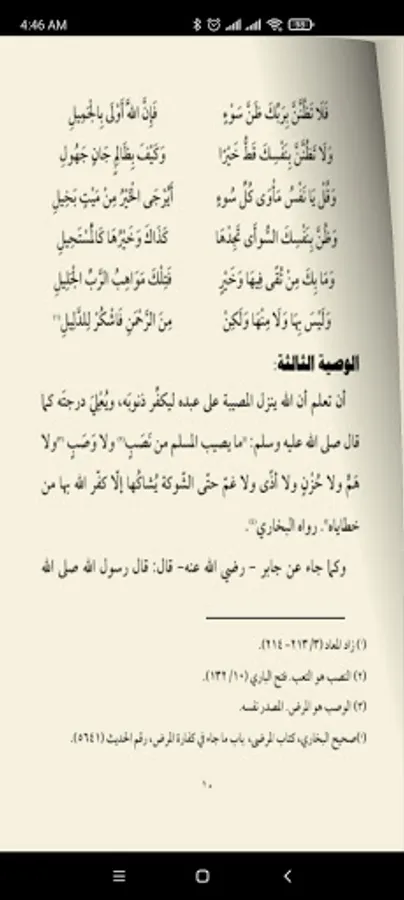 4:46 AM
55
فَلَا تَظُنَّنَّ بِرَبِّكَ ظَنَّ سَوْءٍ فَإِنَّ اللهَ أَوْلَى بِالْجَمِيلِ
وَلَا تَظُنَّنَّ بِنَفْسِكَ قَطُّ خَيْرًا وَكَيْفَ بِظَالِمٍ جَانٍ جَهُولِ
وَقُلْ يَا نَفْسُ مَأْوَى كُلِّ سُوءٍ أَيُرْجَى الْخَيْرُ مِنْ مَيْتٍ بَخِيلِ
وَظُنَّ بِنَفْسِكَ السُّوأَى تَجِدْهَا كَذَاكَ وَخَيْرُهَا كَالْمُسْتَحِيلِ
وَمَا بِكَ مِنْ تُقًى فِيهَا وَخَيْرٍ فَتِلْكَ مَوَاهِبُ الرَّبِّ الْجَلِيلِ
وَلَيْسَ بِهَا وَلَا مِنْهَا وَلَكِنْ مِنَ الرَّحْمَنِ فَاشْكُرْ لِلدَّلِيلِ(١)
الوصية الثالثة:
أن تعلم أن الله ينزل المصيبة على عبده ليكفِّر ذنوبَه، ويُعْلِيَ درجتَه كما
قال صلى الله عليه وسلم: "ما يصيب المسلم من نَصَبٍ(٢) ولا وَصَبٍ(٣) ولا
هَمٍّ ولا حُزْنٍ ولا أذًى ولا غمّ حتّى الشّوكة يُشاكُها إلّا كفّر الله بها من
خطاياه". رواه البخاري(٤).
وكما جاء عن جابر – رضي الله عنه– قال: قال رسول الله صلى الله
(١) زاد المعاد (٣/ ٢١٣– ٢١٤).
(٢) النصب هو التعب. فتح الباري (١٠/ ١٣٢).
(٣) الوصب هو المرض. المصدر نفسه.
(٤) صحيح البخاري، كتاب المرضى، باب ما جاء في كفارة المرض، رقم الحديث (٥٦٤١).
١٠